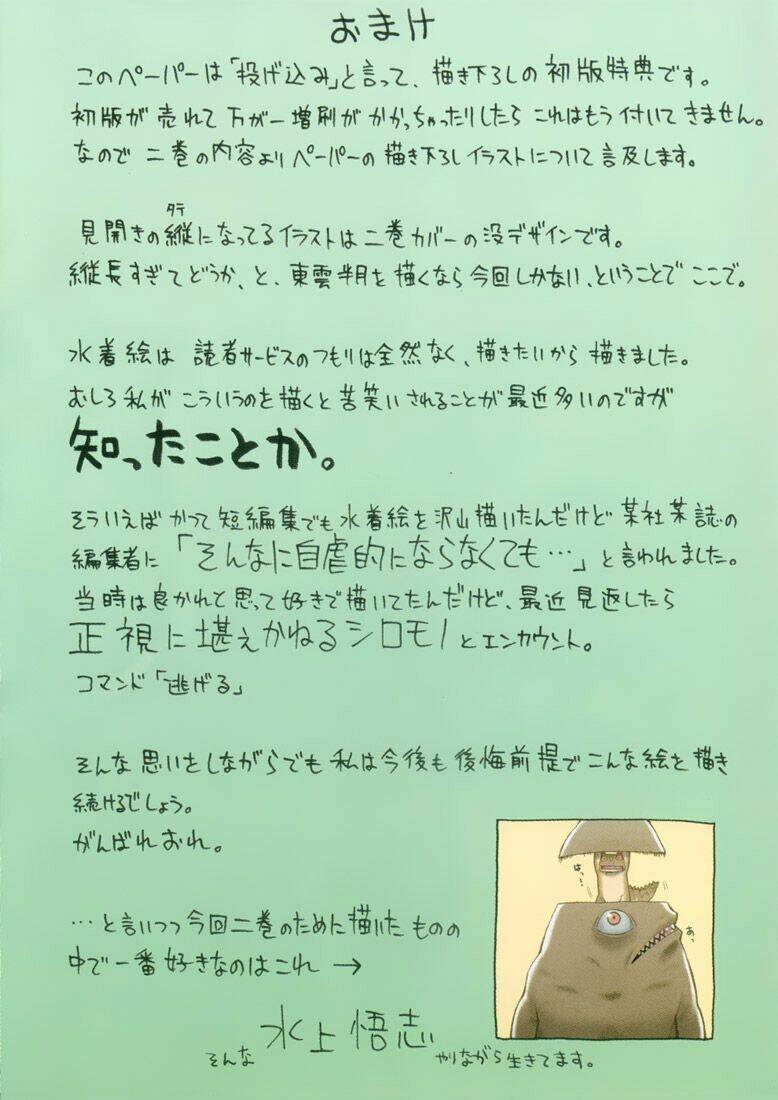 おまけ
このペーパーは「投げ込み」と言って、描き下ろしの初版特典です。
初版が売れて万が一増刷がかかっちゃったりしたらこれはもう付いてきません。
なので二巻の内容よりペーパーの描き下ろしイラストについて言及します。
タテ
見開きの縦になってるイラストは二巻カバーの没デザインです。
縦長すぎてどうか、と、東雲半月を描くなら今回しかない、ということでここで。
水着絵は読者サービスのつもりは全然なく、描きたいから描きました。
むしろ私がこういうのを描くと苦笑いされることが最近多いのですが
知ったことか。
そういえばかつて短編集でも水着絵を沢山描いたんだけど某社某誌の
編集者に「そんなに自虐的にならなくても…」と言われました。
当時は良かれと思って好きで描いてたんだけど、最近見返したら
正視に堪えかねるシロモノとエンカウント。
コマンド「逃げる」
そんな思いをしながらでも私は今後も後悔前提でこんな絵を描き
続けるでしょう。
がんばれおれ。
…と言いつつ今回二巻のために描いたものの
中で一番好きなのはこれ→
はっ…
あ、
そんな 水上悟志 やりながら生きてます。